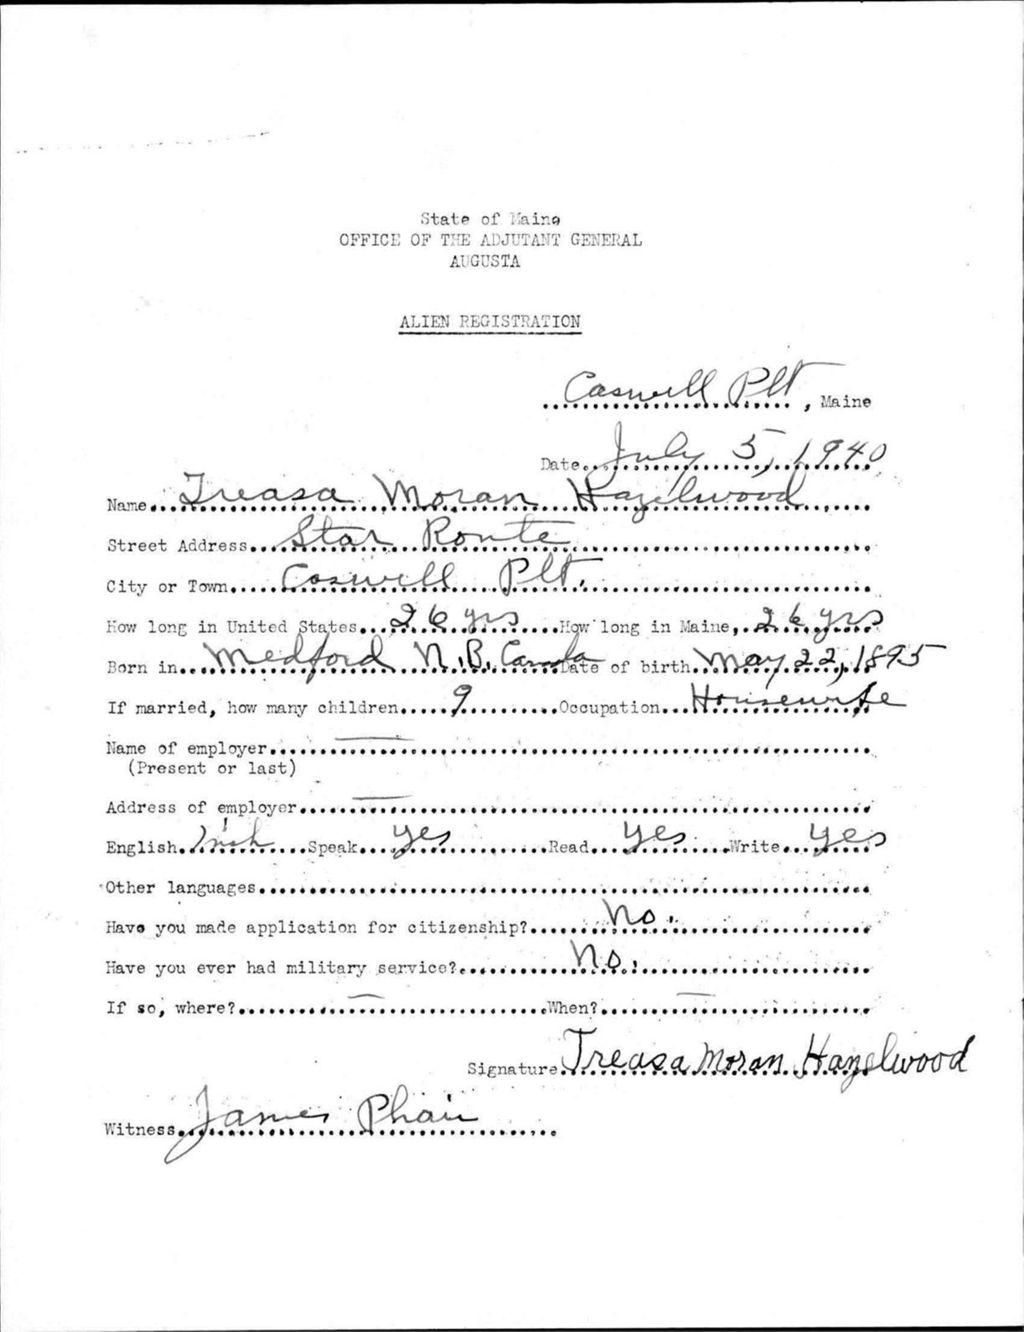 State of Maine
OFFICE OF THE ADJUTANT GENERAL
AUGUSTA
ALIEN REGISTRATION
Caswell Plt, Maine
Date July 5, 1940
Name Treasa Moran Hazelwood
Street Address Star Route
City or Town Caswell Plt.
How long in United States 26 yrs How long in Maine, 26 yrs
Born in Medford N.B. Canada Date of birth May 22, 1895
If married, how many children 9 Occupation Housewife
Name of employer —
(Present or last)
Address of employer —
English Irish Speak yes Read yes Write yes
Other languages
Have you made application for citizenship? No.
Have you ever had military service? No.
If so, where? — When? —
Signature Treasa Moran Hazelwood
Witness James Phair